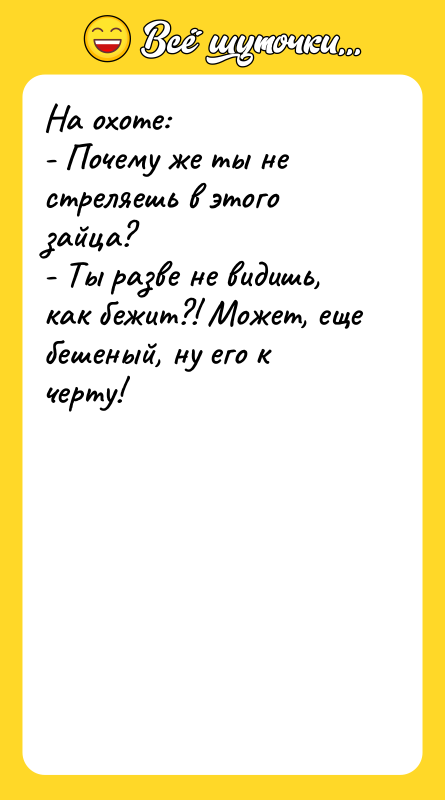 Всё шуточки...
На охоте:
- Почему же ты не
стреляешь в этого
зайца?
- Ты разве не видишь,
как бежит?! Может, еще
бешеный, ну его к
черту!